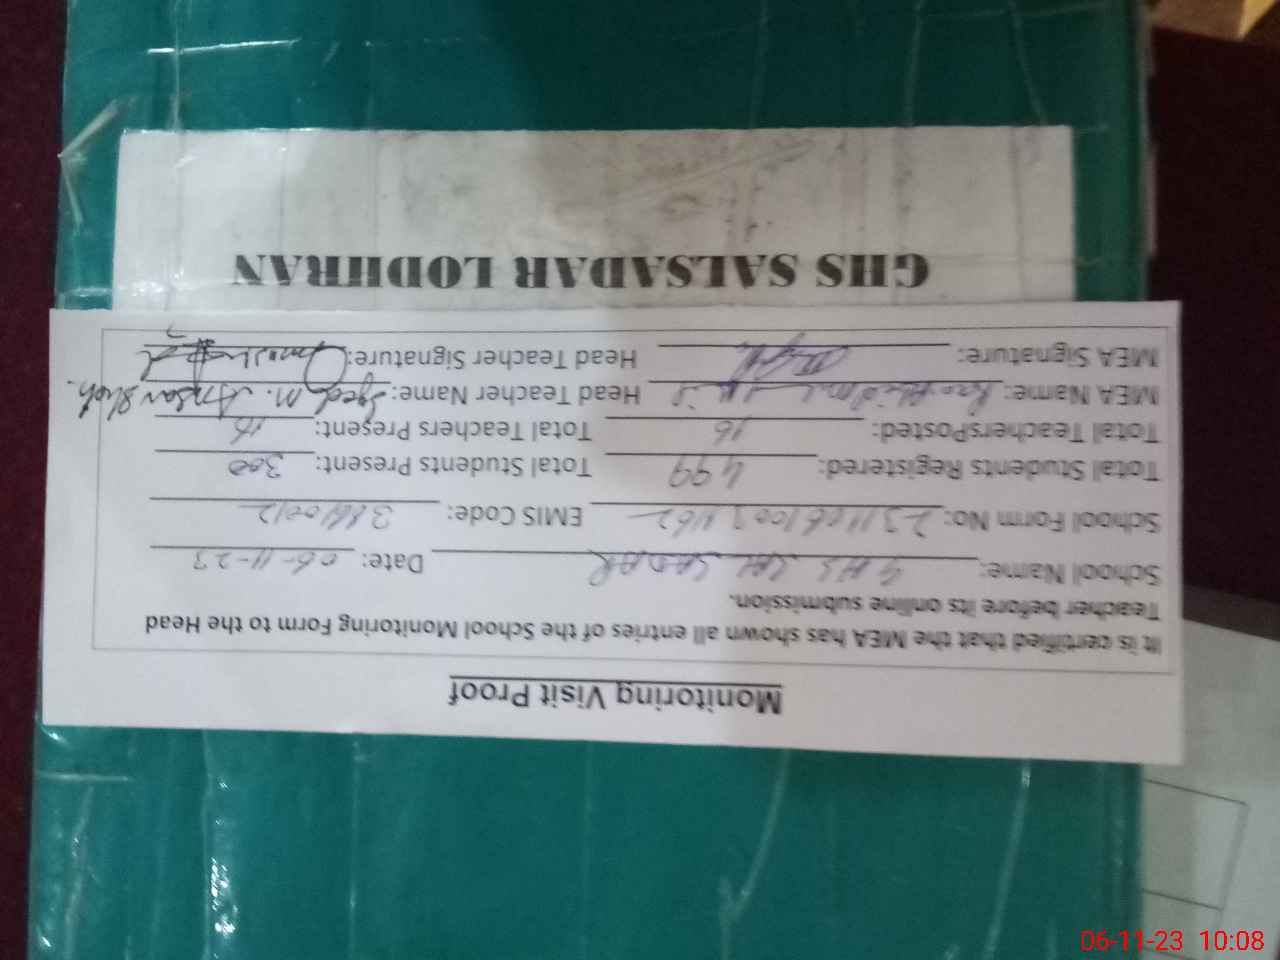 Monitoring Visit Proof
It is certified that the MEA has shown all entries of the School Monitoring Form to the Head
Teacher before its online submission.
School Name: GHS SAL SADAR Date: 06-11-23
School Form No: EMIS Code:
Total Students Registered: 499 Total Students Present: 300
Total TeachersPosted: 16 Total Teachers Present: 16
MEA Name: Head Teacher Name: Syed M. Ansar Shah.
MEA Signature: Head Teacher Signature:
GHS SALSADAR LODHRAN
06-11-23 10:08